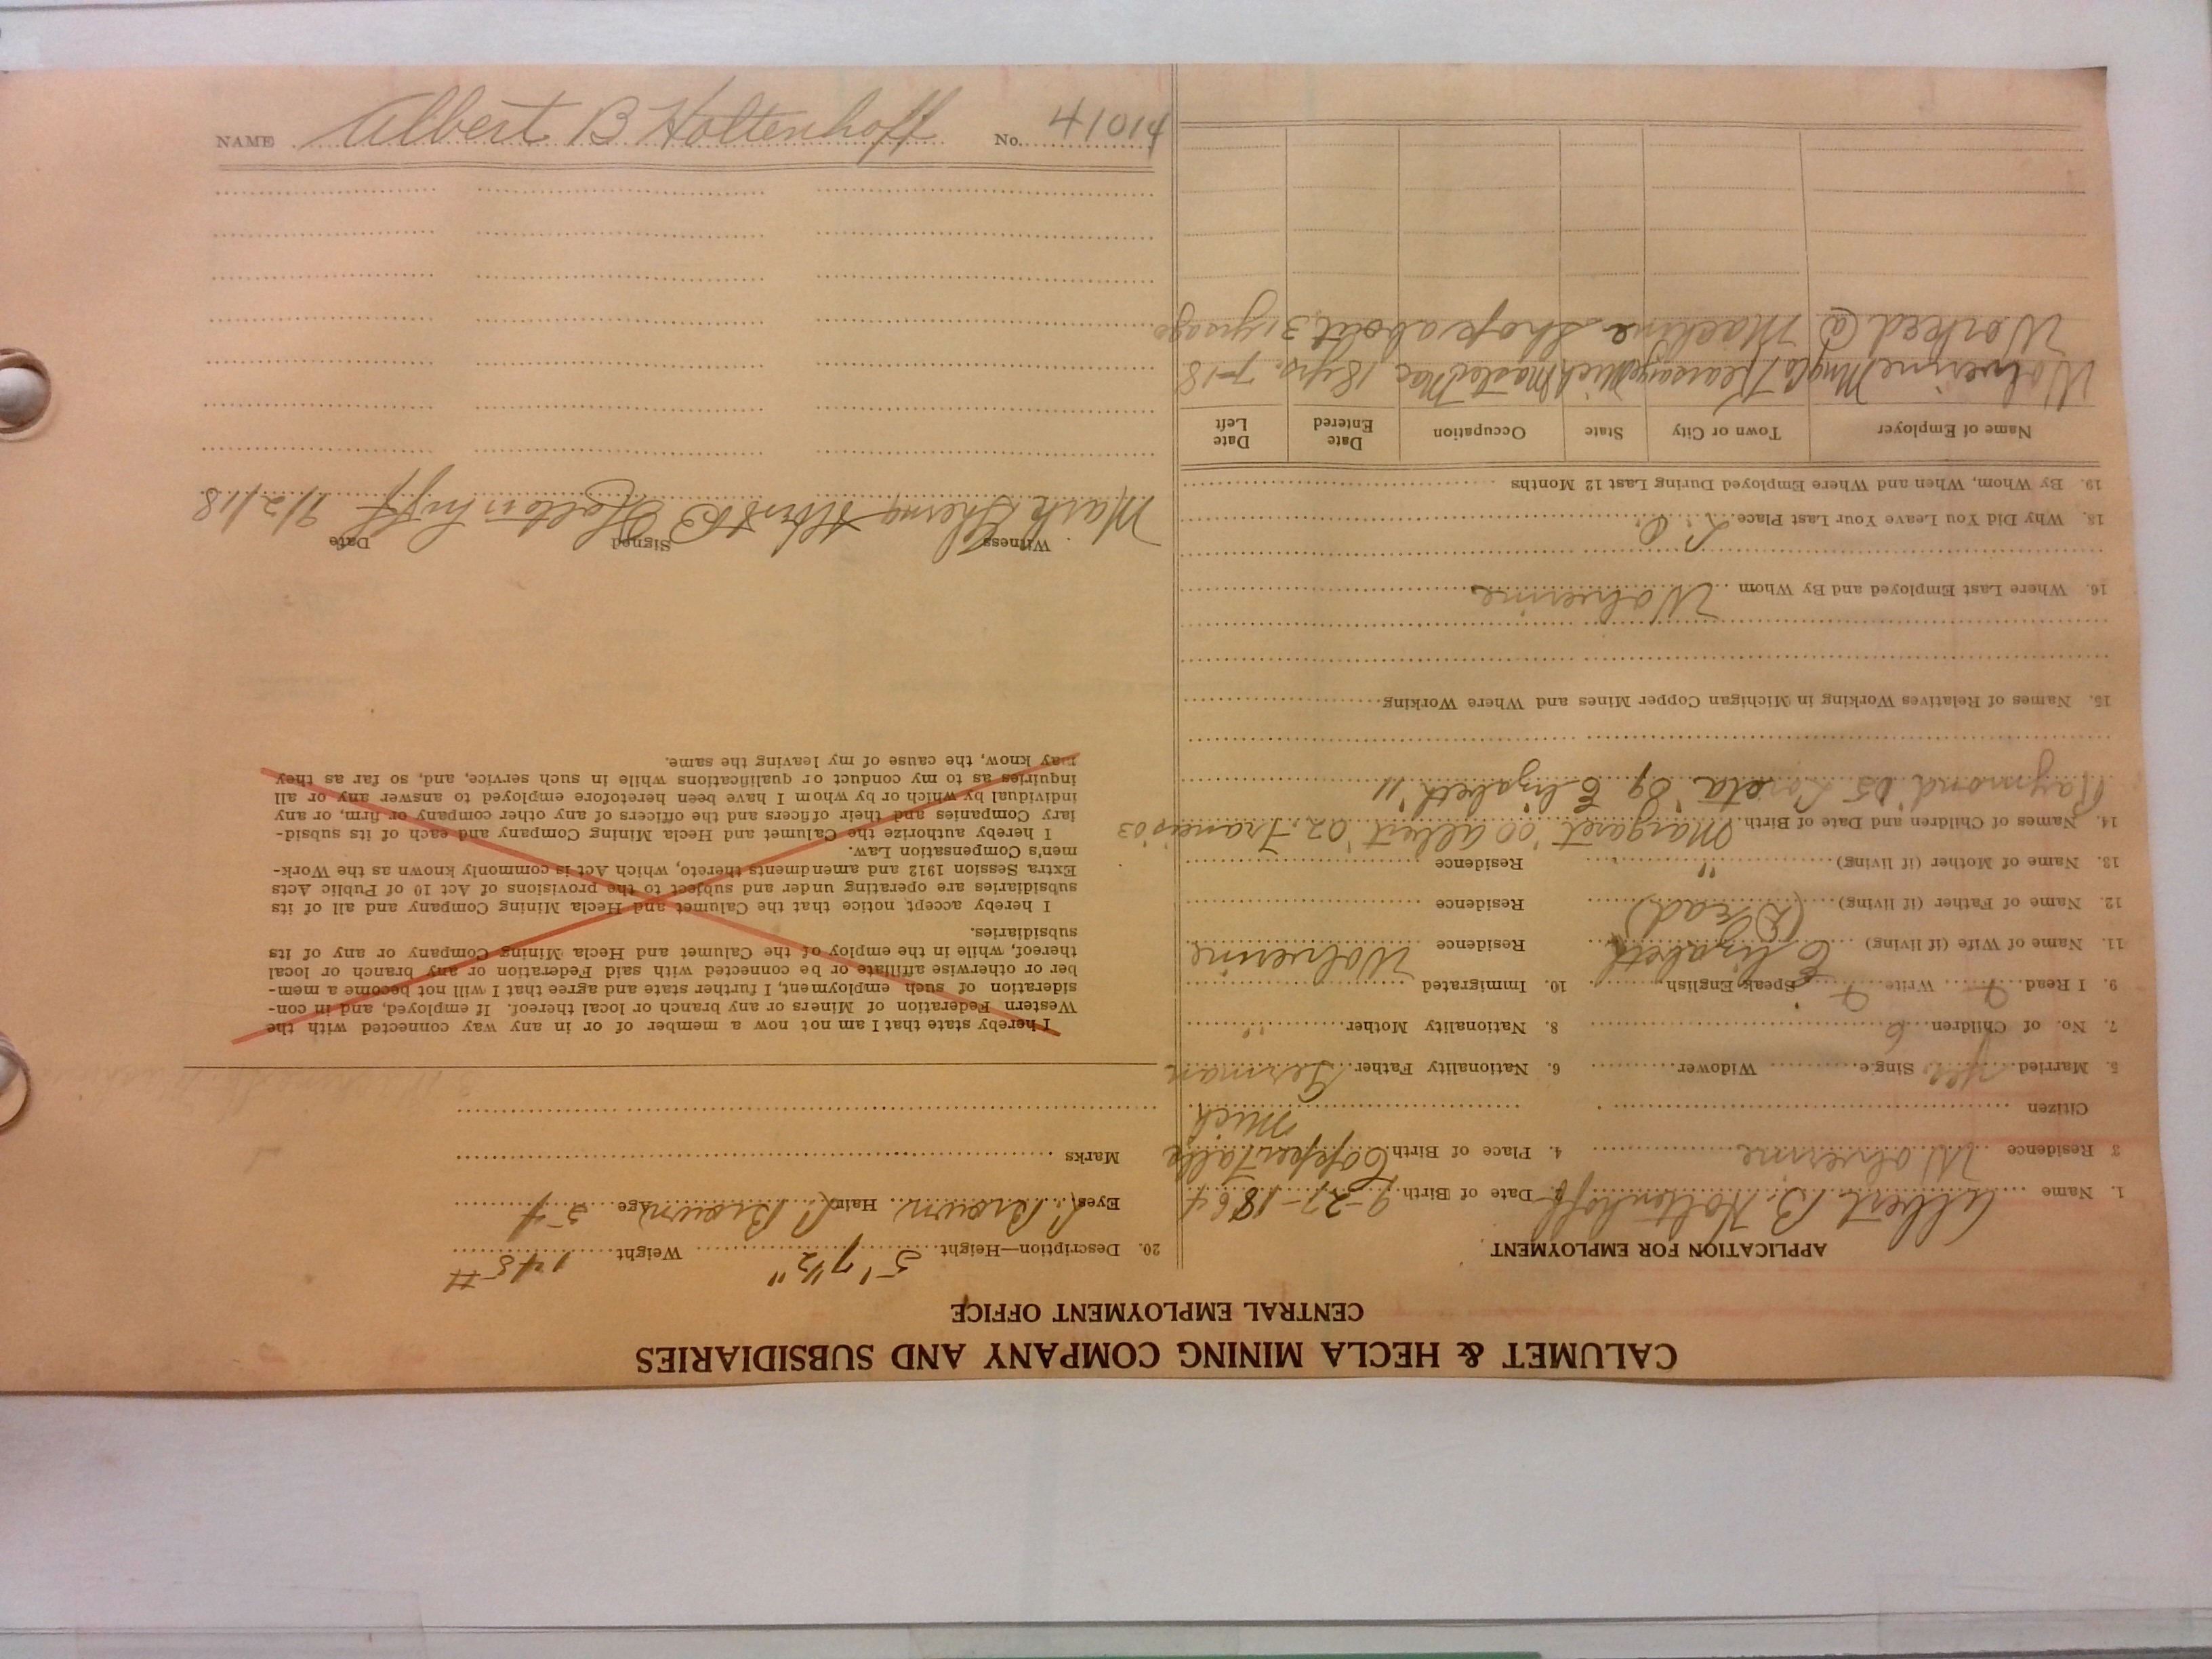 CALUMET & HECLA MINING COMPANY AND SUBSIDIARIES
CENTRAL EMPLOYMENT OFFICE
APPLICATION FOR EMPLOYMENT
1. Name Albert B. Holtenhoff 2. Date of Birth 9-27-1864
3 Residence Wolverine 4. Place of Birth Copper Falls
Mich
Citizen
5. Married Yes Single Widower 6. Nationality Father German
7. No. of Children 6 8. Nationality Mother "
9. I Read Write Speak English 10. Immigrated
11. Name of Wife (if living) Elizabeth Residence Wolverine
12. Name of Father (if living) (Dead) Residence
13. Name of Mother (if living) " Residence
14. Names of Children and Date of Birth. Margaret '00 Albert '02. Francis '03
Raymond '05 Loreta '09 Elizabeth '11
15. Names of Relatives Working in Michigan Copper Mines and Where Working
16. Where Last Employed and By Whom Wolverine
18. Why Did You Leave Your Last Place
19. By Whom, When and Where Employed During Last 12 Months
Name of Employer Town or City State Occupation Date Entered Date Left
Wolverine Mng Co Kearsarge Mich Master Mac 18 yrs. 7-18
Worked @ Machine Shop about 31 yrs ago
20. Description—Height 5' 7 1/2" Weight 145 #
Eyes Brown Hair Brown Age 54
Marks
I hereby state that I am not now a member of or in any way connected with the
Western Federation of Miners or any branch or local thereof. If employed, and in con-
sideration of such employment, I further state and agree that I will not become a mem-
ber or otherwise affiliate or be connected with said Federation or any branch or local
thereof, while in the employ of the Calumet and Hecla Mining Company or any of its
subsidiaries.
I hereby accept notice that the Calumet and Hecla Mining Company and all of its
subsidiaries are operating under and subject to the provisions of Act 10 of Public Acts
Extra Session 1912 and amendments thereto, which Act is commonly known as the Work-
men's Compensation Law.
I hereby authorize the Calumet and Hecla Mining Company and each of its subsid-
iary Companies and their officers and the officers of any other company or firm, or any
individual by which or by whom I have been heretofore employed to answer any or all
inquiries as to my conduct or qualifications while in such service, and, so far as they
may know, the cause of my leaving the same.
Witness Signed Date
Mark Albert B Holtenhoff 9/2/18
NAME Albert B Holtenhoff No. 41014